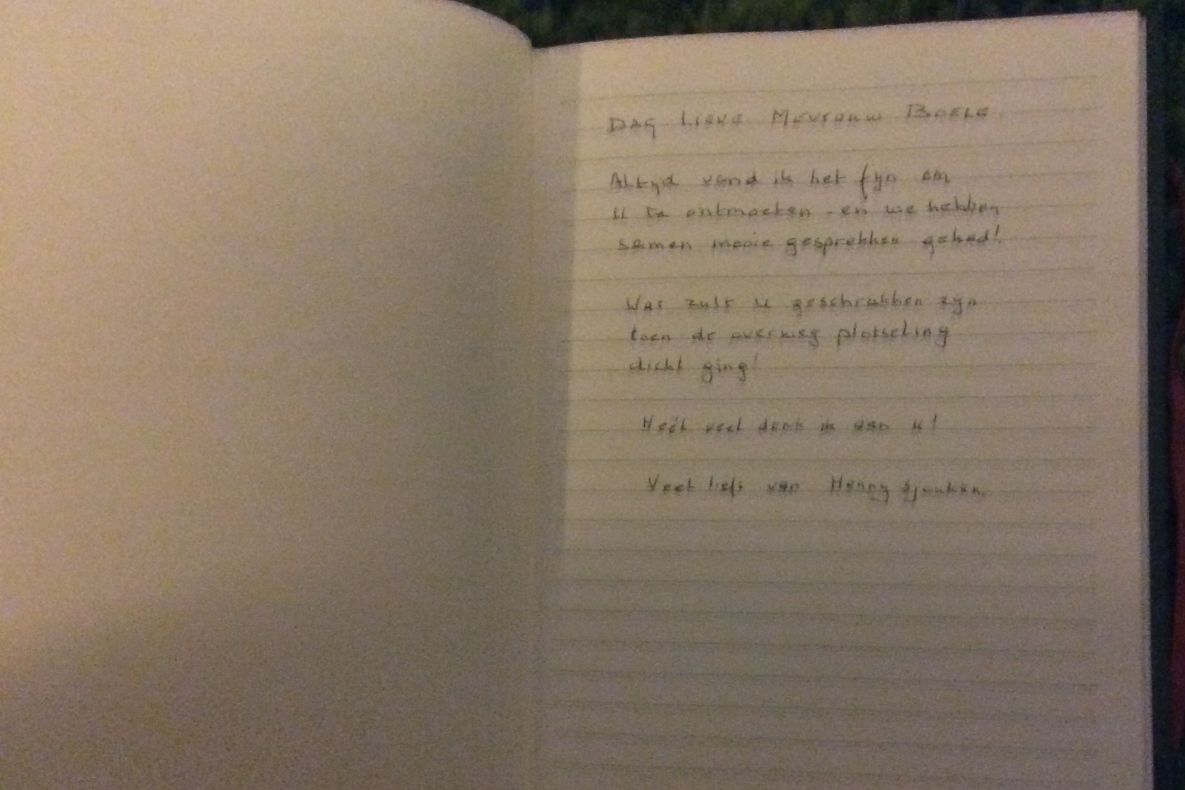 Dag Lieve Mevrouw Boele
Altijd vond ik het fijn om
U te ontmoeten - en we hebben
samen mooie gesprekken gehad!
Wat zult u geschrokken zijn
toen de overweg plotseling
dicht ging!
Heél veel denk ik aan u!
Veel liefs van Henny